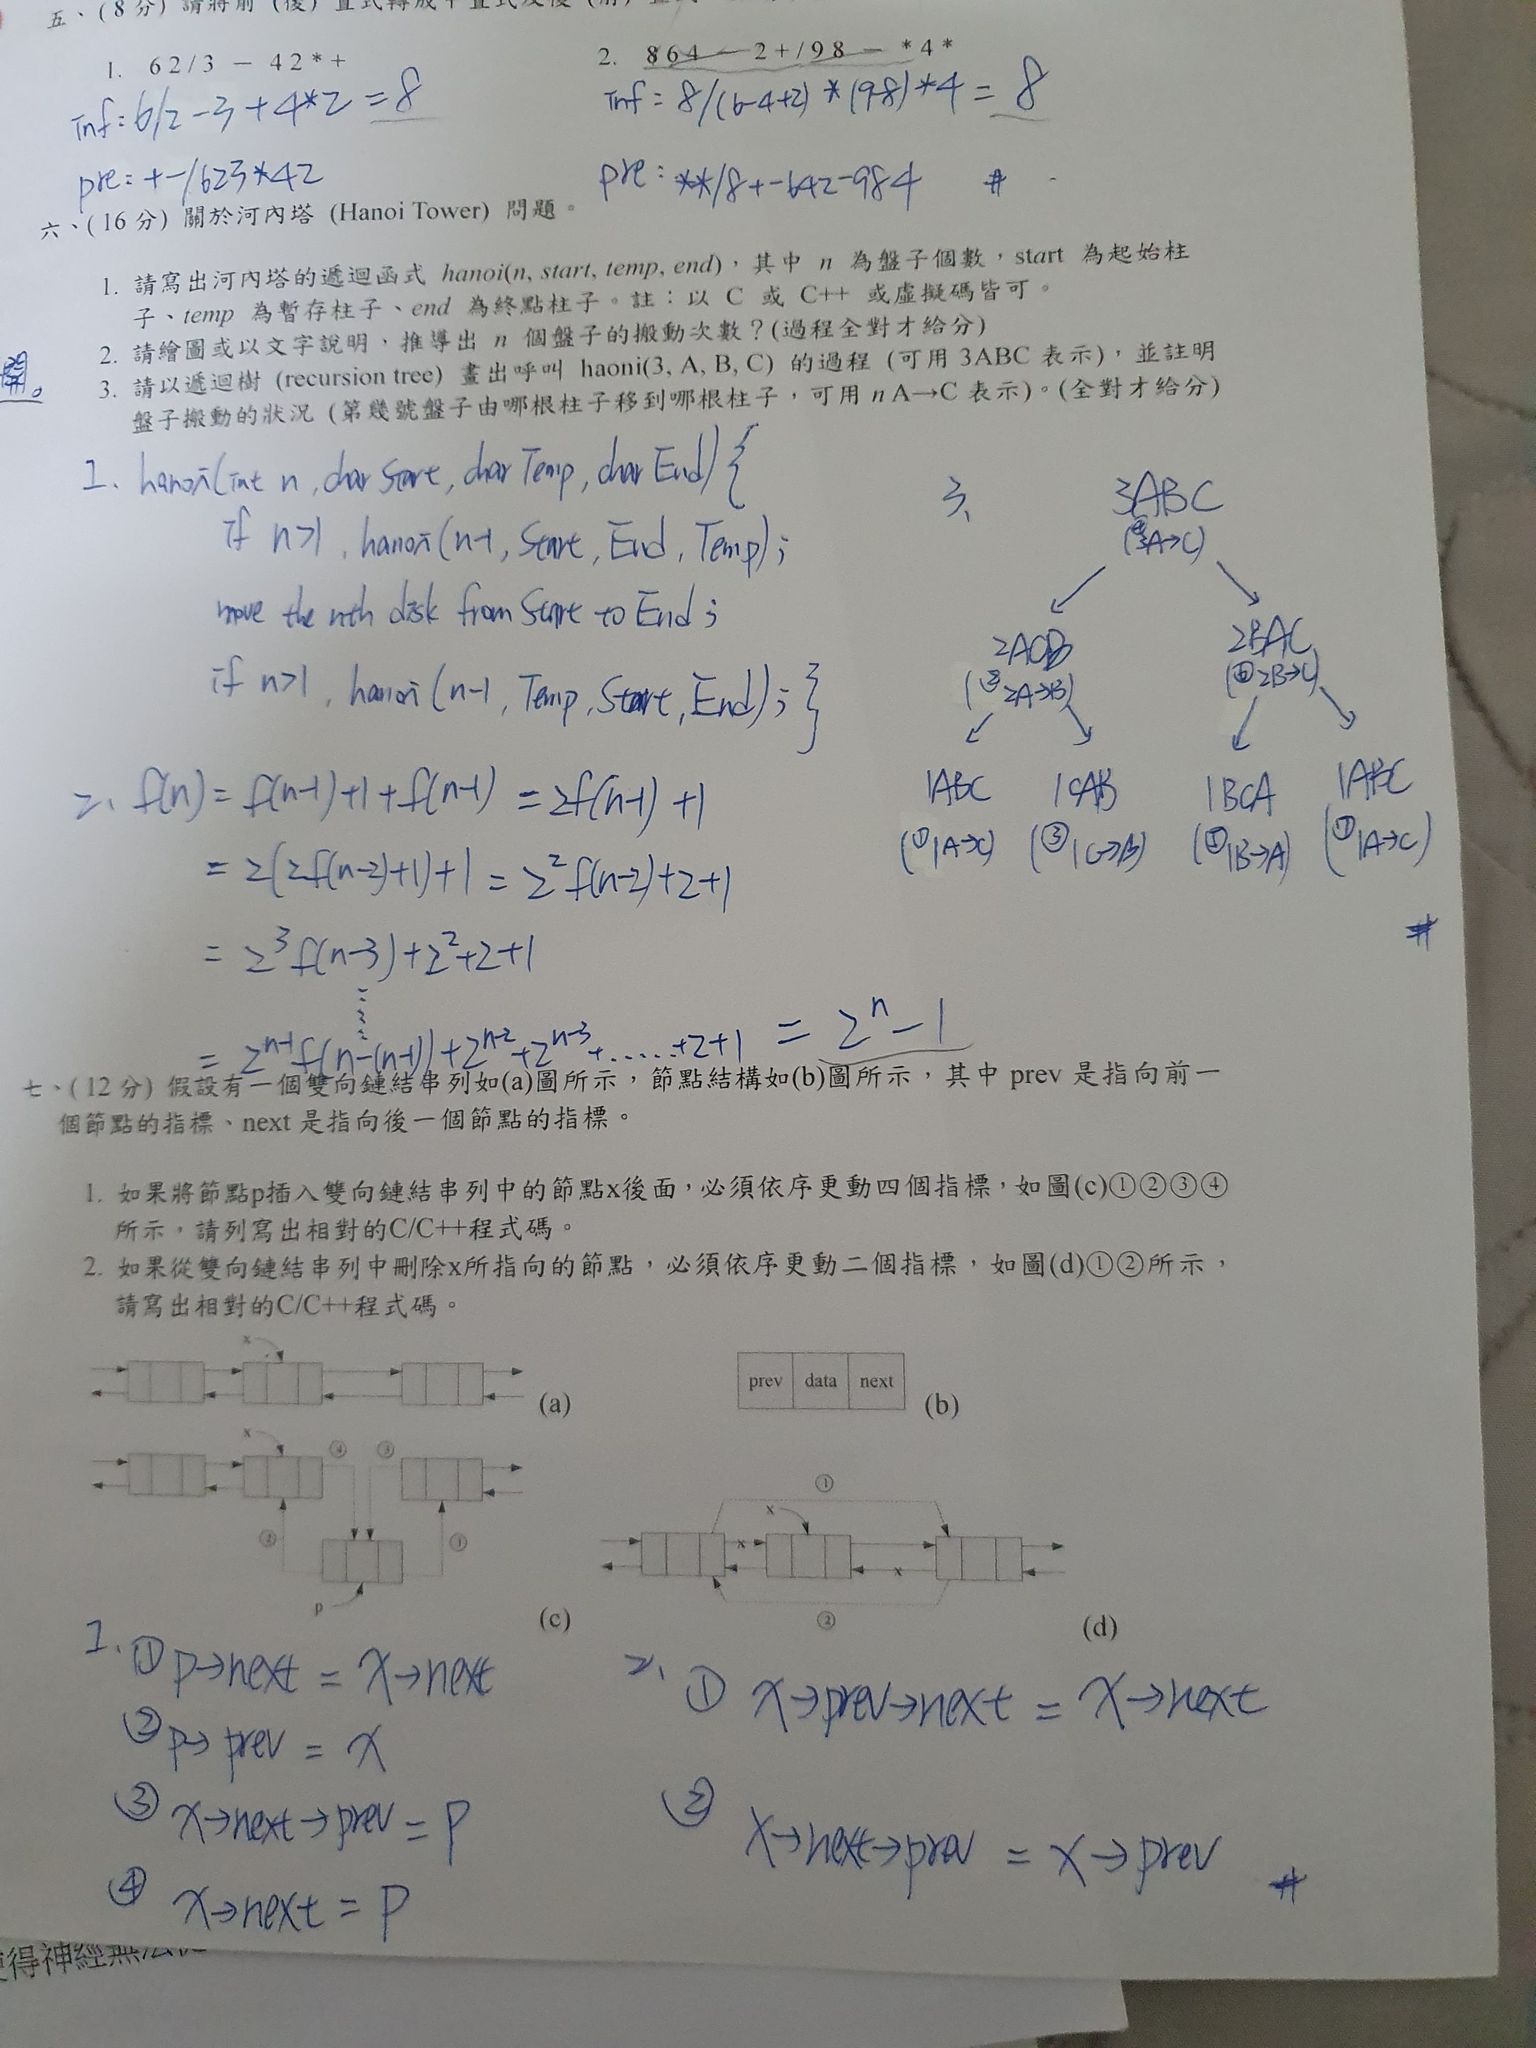 五、(8分) 請將前 (後) 置式轉成中置式及後 (前)
1. 62/3 － 42*+
2. 864 － 2+/98 － *4*
Inf: 6/2-3+4*2 = 8
Inf: 8/(6-4+2)*(9-8)*4 = 8
pre: +-/623*42
pre: **/8+-642-984 #
六、(16分) 關於河內塔 (Hanoi Tower) 問題。
1. 請寫出河內塔的遞迴函式 hanoi(n, start, temp, end)，其中 n 為盤子個數，start 為起始柱
子、temp 為暫存柱子、end 為終點柱子。註：以 C 或 C++ 或虛擬碼皆可。
2. 請繪圖或以文字說明，推導出 n 個盤子的搬動次數？(過程全對才給分)
3. 請以遞迴樹 (recursion tree) 畫出呼叫 haoni(3, A, B, C) 的過程 (可用 3ABC 表示)，並註明
盤子搬動的狀況 (第幾號盤子由哪根柱子移到哪根柱子，可用 n A→C 表示)。(全對才給分)
1. hanoi(int n, char Start, char Temp, char End) {
if n>1, hanoi(n-1, Start, End, Temp);
move the nth disk from Start to End;
if n>1, hanoi(n-1, Temp, Start, End); }
3、
3ABC
(④3A→C)
2ACB 2BAC
(②2A→B) (⑥2B→C)
1ABC 1CAB 1BCA 1ABC
(①1A→C) (③1C→B) (⑤1B→A) (⑦1A→C)
#
2、f(n) = f(n-1)+1+f(n-1) = 2f(n-1)+1
= 2(2f(n-2)+1)+1 = 2²f(n-2)+2+1
= 2³f(n-3)+2²+2+1
= 2ⁿ⁻¹f(n-(n-1))+2ⁿ⁻²+2ⁿ⁻³+......+2+1 = 2ⁿ-1
七、(12分) 假設有一個雙向鏈結串列如(a)圖所示，節點結構如(b)圖所示，其中 prev 是指向前一
個節點的指標、next 是指向後一個節點的指標。
1. 如果將節點p插入雙向鏈結串列中的節點x後面，必須依序更動四個指標，如圖(c)①②③④
所示，請列寫出相對的C/C++程式碼。
2. 如果從雙向鏈結串列中刪除x所指向的節點，必須依序更動二個指標，如圖(d)①②所示，
請寫出相對的C/C++程式碼。
x
(a)
prev data next
(b)
x ④ ③
② ①
p
(c)
①
x
x x
②
(d)
1、① p→next = x→next
② p→prev = x
③ x→next→prev = p
④ x→next = p
2、① x→prev→next = x→next
② x→next→prev = x→prev #
得神經無法